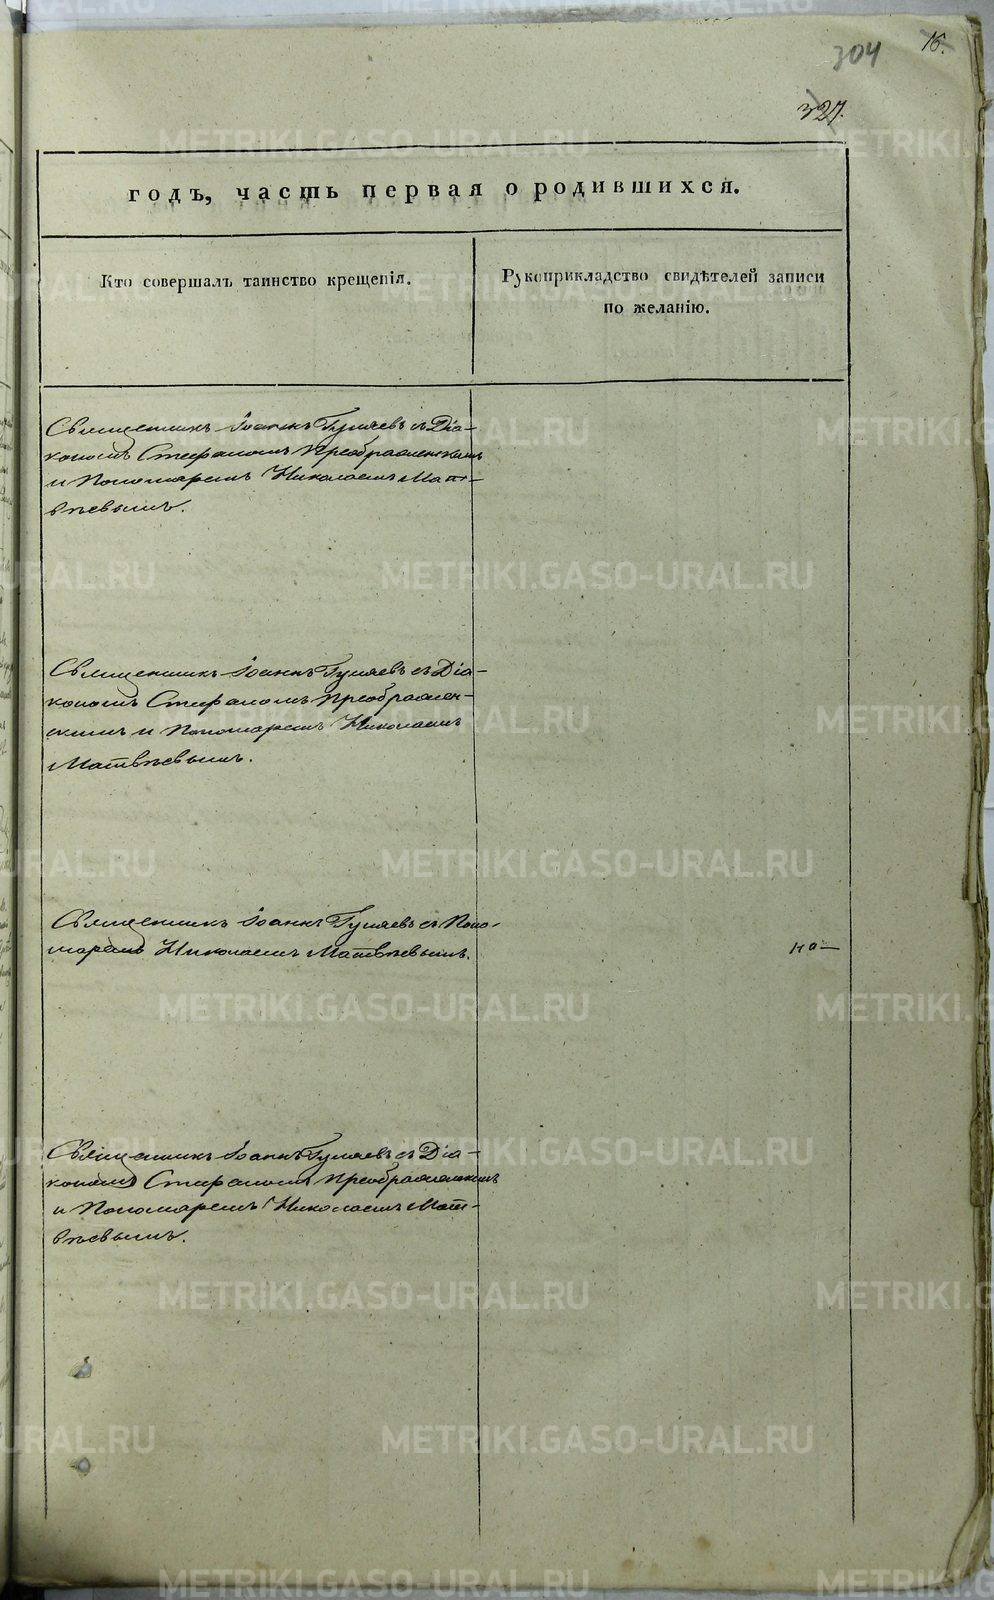 16.
304
327.
годъ, часть первая о родившихся.
Кто совершалъ таинство крещенія.
Рукоприкладство свидѣтелей записи
по желанію.
Священникъ Іоаннъ Гуляевъ съ Діа-
кономъ Стефаномъ Преображенскимъ
и Пономаремъ Николаемъ Мат-
вѣевымъ.
Священникъ Іоаннъ Гуляевъ съ Діа-
кономъ Стефаномъ Преображен-
скимъ и Пономаремъ Николаемъ
Матвѣевымъ.
Священникъ Іоаннъ Гуляевъ съ Поно-
маремъ Николаемъ Матвѣевымъ.
на
Священникъ Іоаннъ Гуляевъ съ Діа-
кономъ Стефаномъ Преображенскимъ
и Пономаремъ Николаемъ Мат-
вѣевымъ.
METRIKI.GASO-URAL.RU